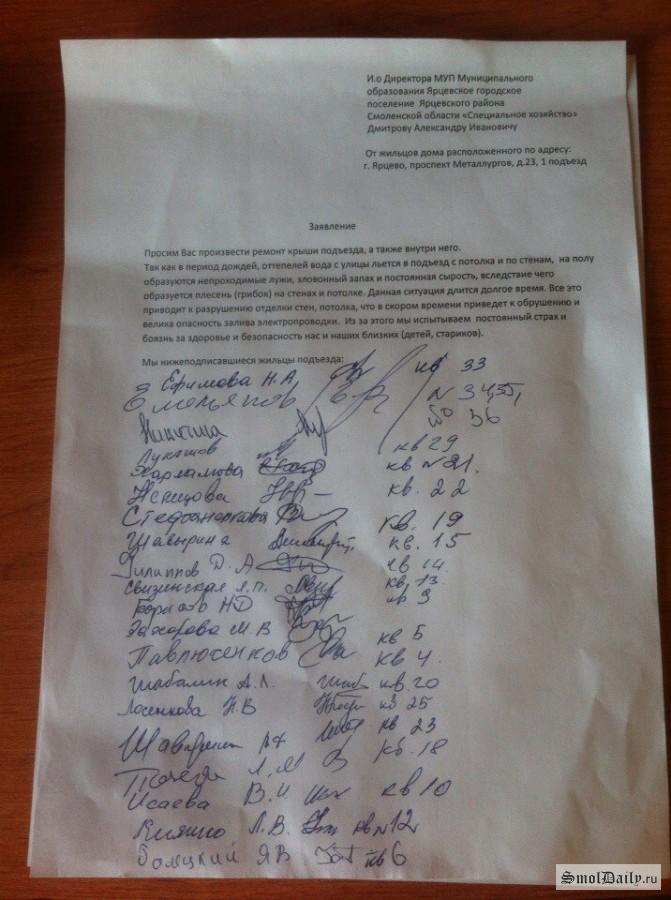 И.о Директора МУП Муниципального
образования Ярцевское городское
поселение Ярцевского района
Смоленской области «Специальное хозяйство»
Дмитрову Александру Ивановичу
От жильцов дома расположенного по адресу:
г. Ярцево, проспект Металлургов, д.23, 1 подъезд
Заявление
Просим Вас произвести ремонт крыши подъезда, а также внутри него.
Так как в период дождей, оттепелей вода с улицы льется в подъезд с потолка и по стенам, на полу
образуются непроходимые лужи, зловонный запах и постоянная сырость, вследствие чего
образуется плесень (грибок) на стенах и потолке. Данная ситуация длится долгое время. Все это
приводит к разрушению отделки стен, потолка, что в скором времени приведет к обрушению и
велика опасность залива электропроводки. Из за этого мы испытываем постоянный страх и
боязнь за здоровье и безопасность нас и наших близких (детей, стариков).
Мы нижеподписавшиеся жильцы подъезда:
Ефимова Н.А. кв 33
36
Никитина
Лукашов кв 29
Харламова кв №21.
Немцова кв. 22
кв. 19
Шавырина кв. 15
Филиппов Д.А кв 14.
Свизинская кв, 13
НД кв 9
Захарова М.В кв 5
Павлюченков кв 4.
Шабалин А.Л. кв. 20
Лосенкова Н.В кв 25
кв 23
Л.М кв. 18
Исаева В.И кв 10
Кияшко Л.В. кв №12
ЯВ кв 6
SmolDaily.ru